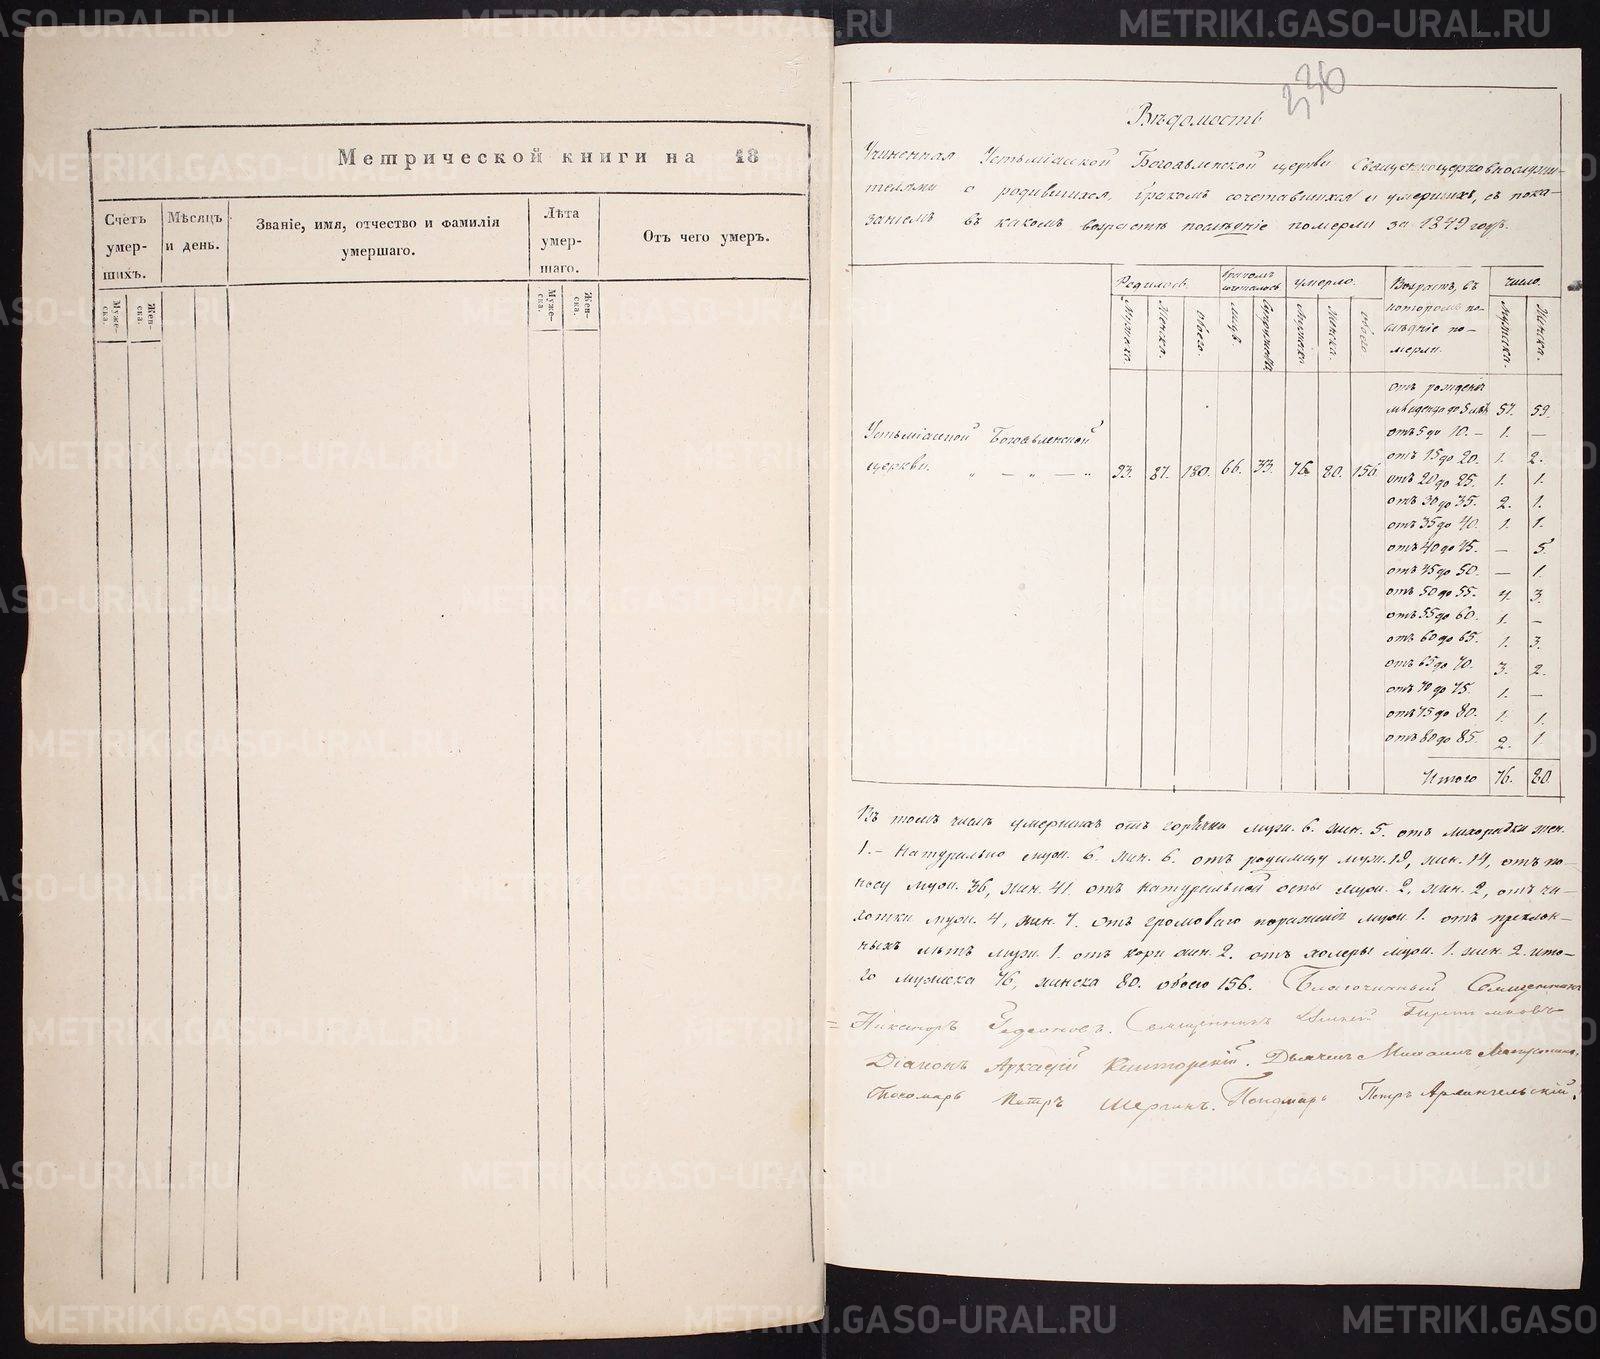 METRIKI.GASO-URAL.RU
Метрической книги на 18
Счетъ умер- шихъ.
Мѣсяцъ и день.
Званіе, имя, отчество и фамилія умершаго.
Лѣта умер- шаго.
Отъ чего умеръ.
Муже- ска.
Жен- ска.
Муже- ска.
Жен- ска.
336
Вѣдомость
Учиненная Устьміасской Богоявленской церкви Священноцерковнослужи-
телями о родившихся, бракомъ сочетавшихся и умершихъ, съ пока-
заніемъ въ какомъ возрастѣ послѣдніе померли за 1849 годъ.
Родилось.
Бракомъ сочеталось
умерло.
Возрастъ, въ
которомъ по-
слѣдніе по-
мерли.
число.
Мужска.
Женска.
обоего.
лицъ.
Мужска.
Женска.
обоего.
Мужска.
Женска.
Устьміасской Богоявленской
церкви. 93. 87. 180. 66. 33. 76. 80. 156
отъ рожденія
младенцa до 5 лѣтъ 57. 59.
отъ 5 до 10. – 1. —
отъ 15 до 20. 1. 2.
отъ 20 до 25. 1. 1.
отъ 30 до 35. 2. 1.
отъ 35 до 40. 1. 1.
отъ 40 до 45. — 5.
отъ 45 до 50. — 1.
отъ 50 до 55. 4. 3.
отъ 55 до 60. 1. –
отъ 60 до 65. 1. 3.
отъ 65 до 70. 3. 2.
отъ 70 до 75. 1. —
отъ 75 до 80. 1. 1.
отъ 80 до 85. 2. 1.
Итого 76. 80.
Въ томъ числѣ умершихъ отъ горячки муж. 6. жен. 5. отъ лихорадки жен.
1. – натурально муж. 6. жен. 6. отъ родимцу муж. 19, жен. 14, отъ по-
носу муж. 36, жен. 41. отъ натуральной оспы муж. 2, жен. 2, отъ ча-
хотки муж. 4, жен. 7. отъ громоваго поражения муж. 1. отъ преклон-
ныхъ лѣтъ муж. 1. отъ кори жен. 2. отъ холеры муж. 1. жен. 2. ито-
го мужска 76, женска 80. обоего 156. Благочинный Священникъ
Никаноръ Гедеоновъ. Священникъ
Діаконъ Аркадій Дьячекъ Михаилъ
Пономарь Петръ Шергинъ. Пономарь Петръ Архангельскій.